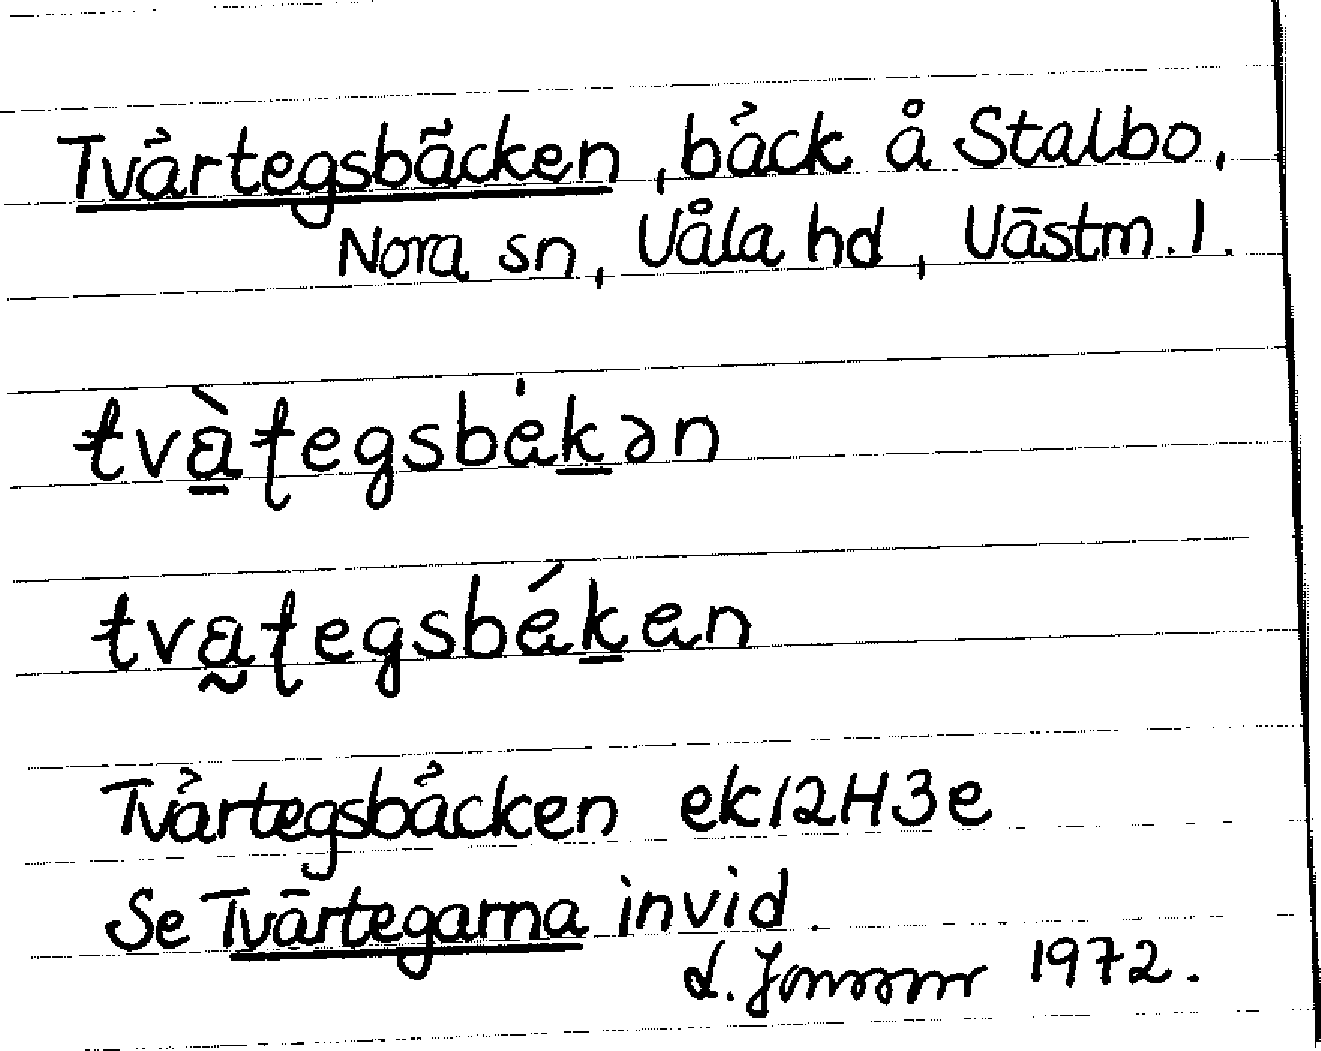 Tvärtegsbäcken, bäck å Stalbo,
Nora sn, Våla hd, Västm. l.
tvàʈegsbékən
tvaʈegsbéken
Tvärtegsbäcken ek12H3e
Se Tvärtegarna invid.
1972.